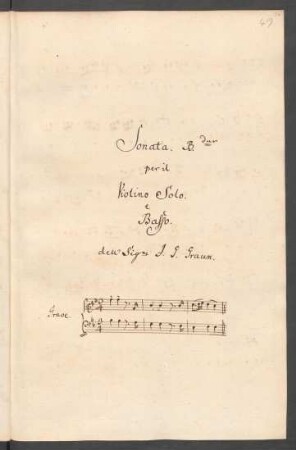 49
Sonata. B. dur
per il
Violino Solo.
e
Basso.
dell Sigr J. G. Graun.
Grave